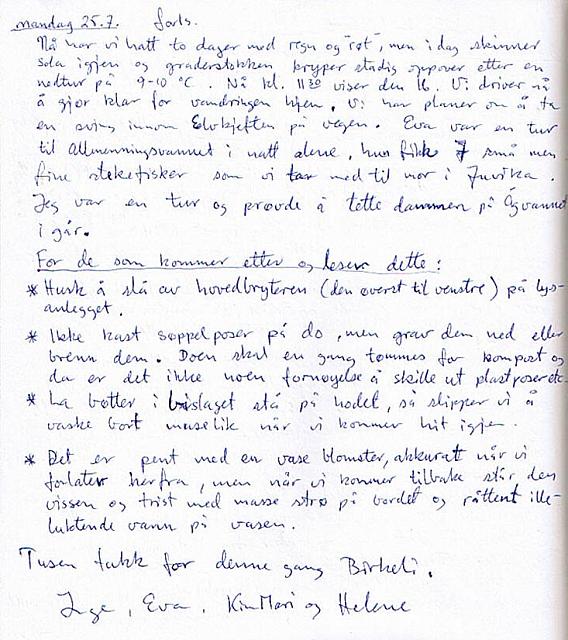 mandag 25.7. forts.
Nå har vi hatt to dager med regn og "røt", men i dag skinner
sola igjen og gradestokken kryper stadig oppover etter en
nedtur på 9-10 °C. Nå kl. 11³⁰ viser den 16. Vi driver nå
å gjør klar for vandringen hjem. Vi har planer om å ta
en sving innom Elvkjeften på vegen. Eva var en tur
til Allmenningsvannet i natt alene, hun fikk 7 små men
fine stekefisker som vi tar med til mor i Juvika.
Jeg var en tur og prøvde å tette dammen på
i går.
For de som kommer etter og leser dette:
* Husk å slå av hovedbryteren (den øverst til venstre) på lys-
anlegget.
* Ikke kast søppelposer på do, men grav dem ned eller
brenn dem. Doen skal en gang tømmes for kompost og
da er det ikke noen fornøyelse å skille ut plastposer etc.
* La bøtter i bislaget stå på hodet, så slipper vi å
vaske bort muselik når vi kommer hit igjen.
* Det er pent med en vase blomster, akkurat når vi
forlater herfra, men når vi kommer tilbake står den
vissen og trist med masse strø på bordet og råttent ille-
luktende vann på vasen.
Tusen takk for denne gang Birkeli.
Inge, Eva, Kim Mari og Helene